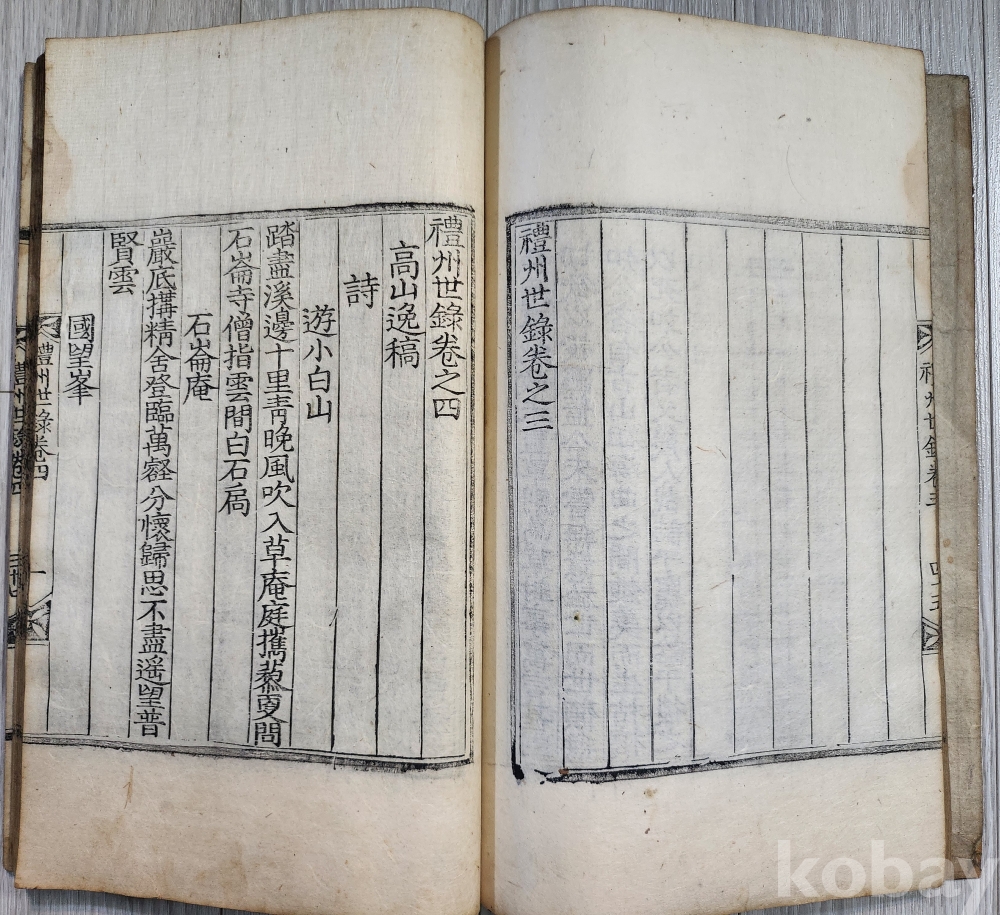 禮州世錄卷之三
禮州世錄卷之四
高山逸稿
詩
遊小白山
踏盡溪邊十里靑晩風吹入草庵庭攜藜更問
石崙寺僧指雲間白石扃
石崙庵
巖底搆精舍登臨萬壑分懷歸思不盡遥望普
賢雲
國望峯
禮州世錄卷四
一
禮州世錄卷三
四十五
kobay